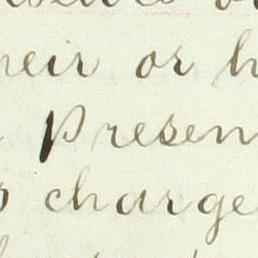 heir or h
Presen
s charge